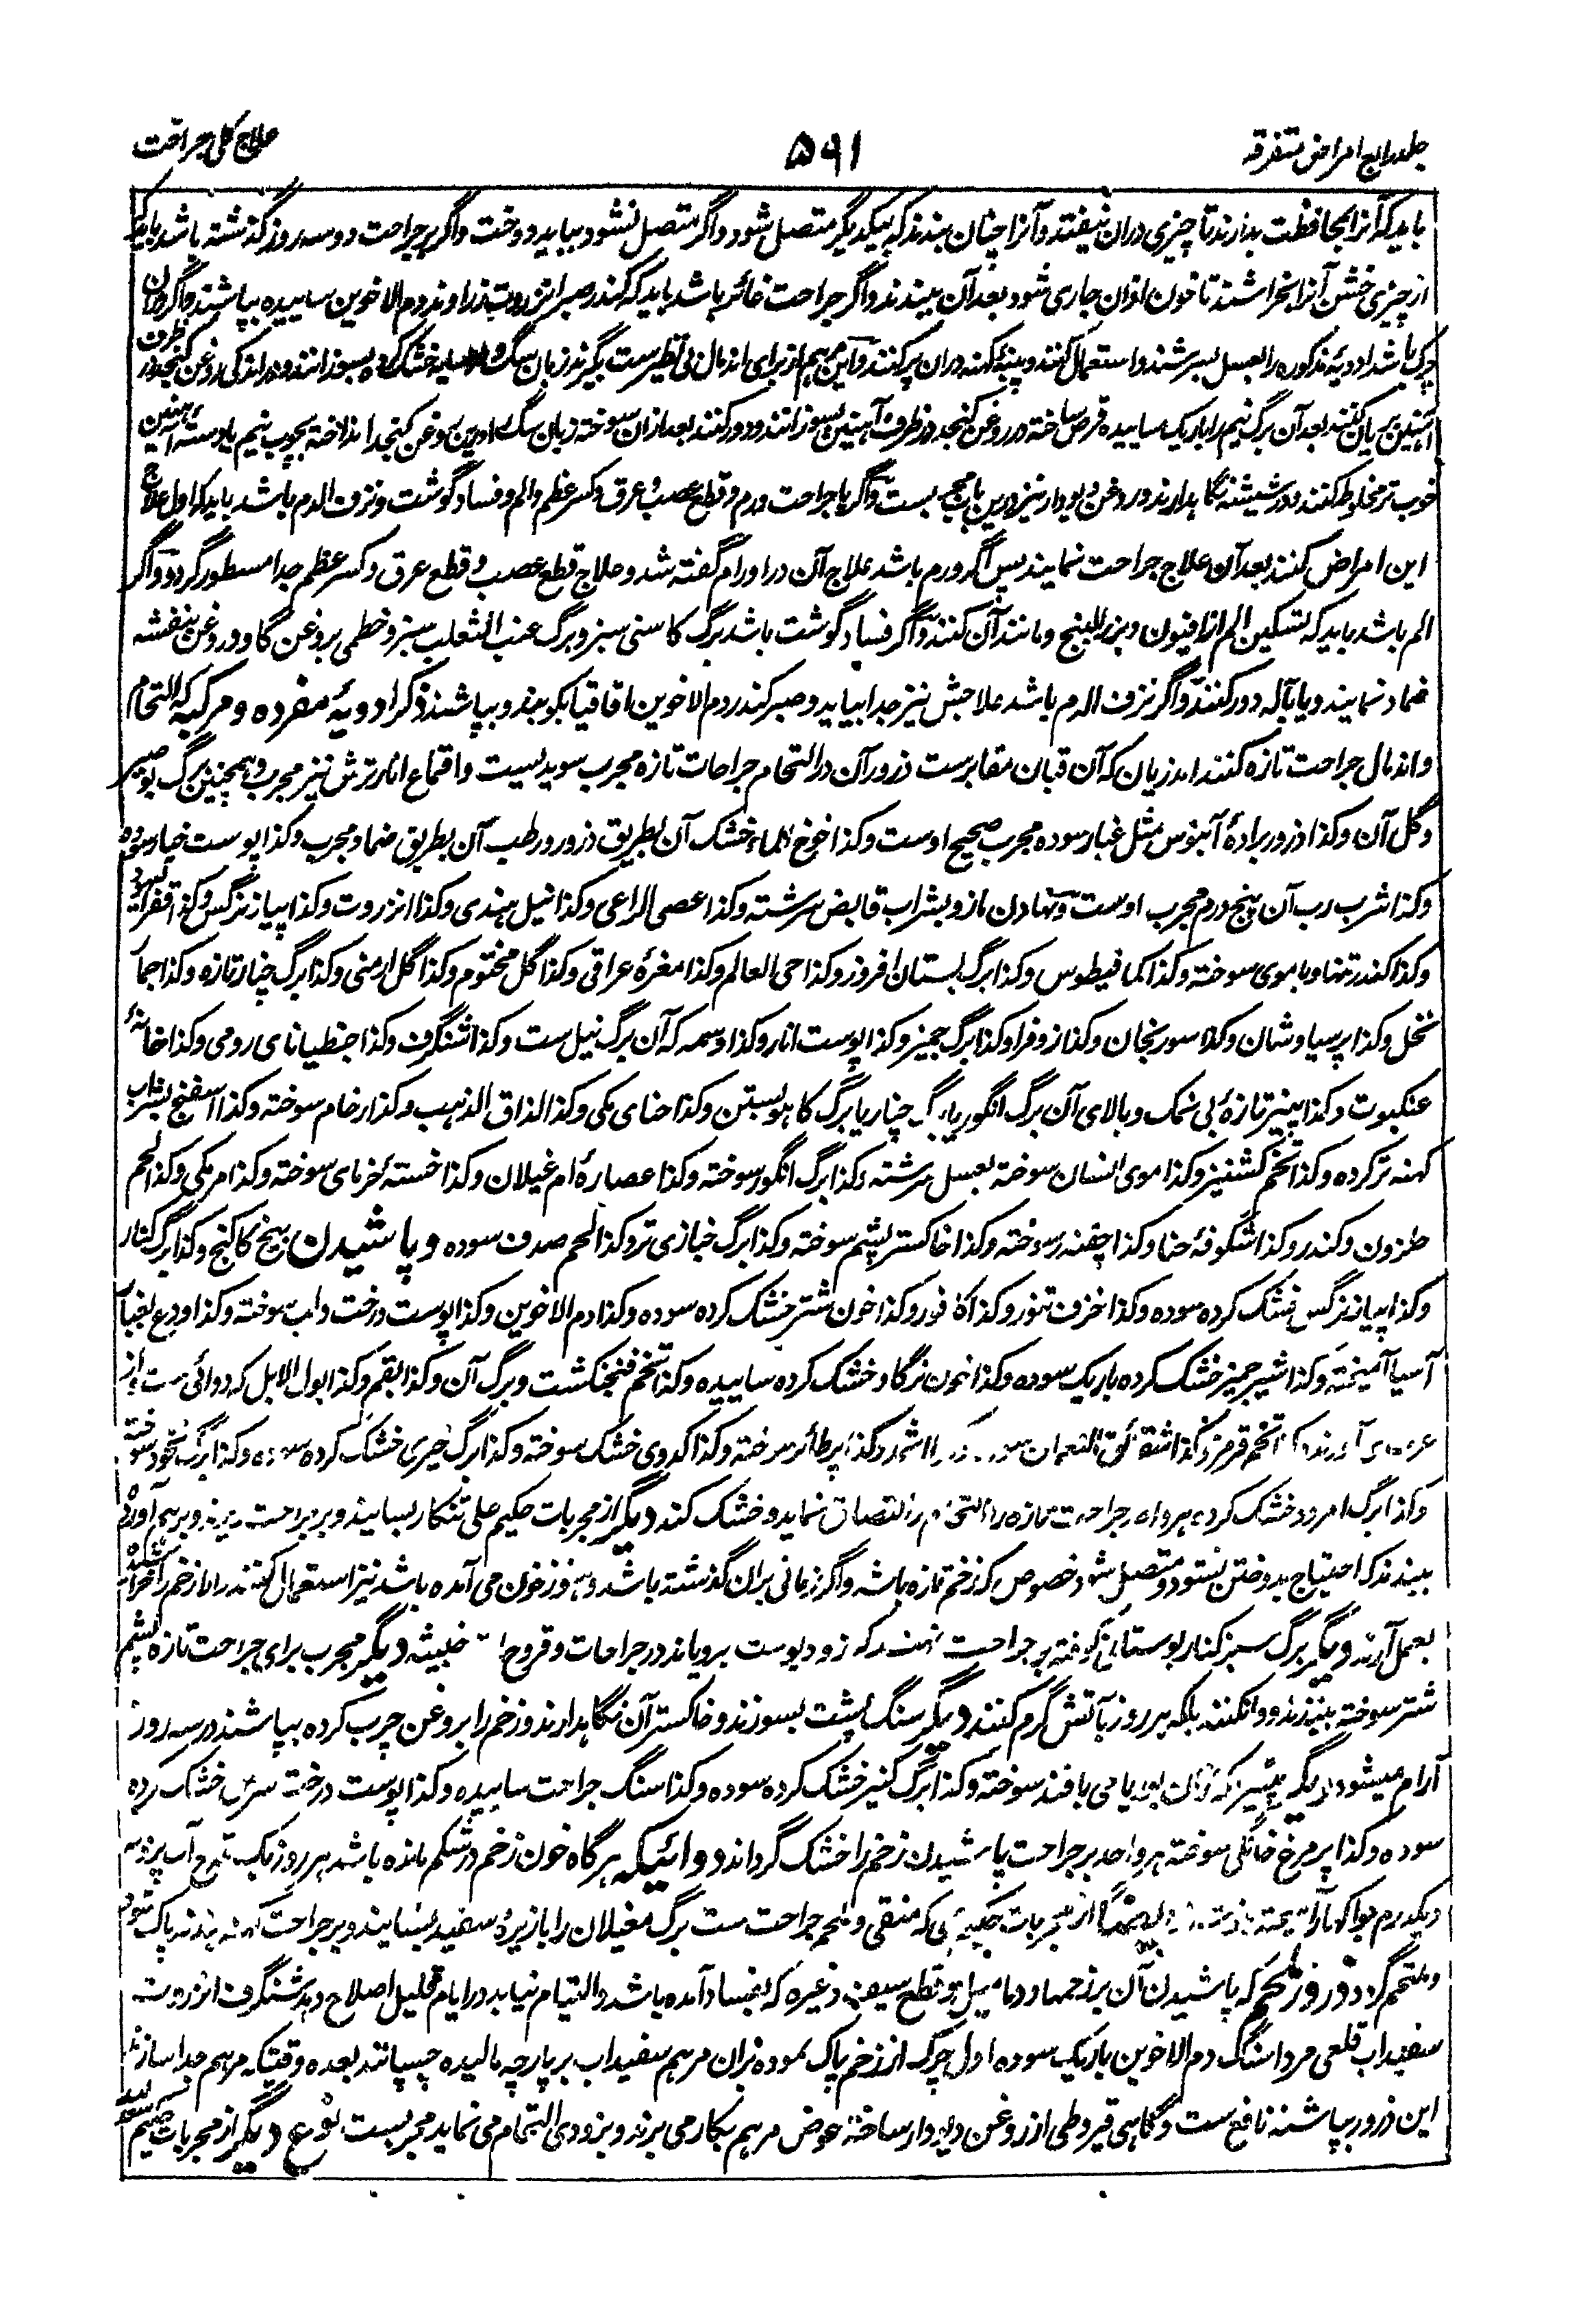 جلد رابع امراض متفرقه
۵۹۱
علاج کلی جراحت
باید که آنرا بمحافظت بدارند تا چیزی دران نیفتد و آنرا چنان ببندند که بیکدیگر متصل شود و اگر متصل نشود بباید دوخت و اگر بر جراحت دو سه روز گذشته باشد باید که
از چیزی خشن آنرا بخراشند تا خون ازان جاری شود بعد آن ببندند و اگر جراحت غائر باشد باید که کندر صبر انزروت زراوند دم الاخوین ساییده بپاشند و اگر دران
چرک باشد ادویۀ مذکوره را بعسل بسرشند و استعمال کنند و پنبۀ کهنه دران پر کنند و این مرهم از برای اندمال بی نظیر ست بگیرند زبان سگ و در سایه خشک کرده بسوزانند و در اندکی روغن کنجد در ظرف
آهنین بریان کنند بعد آن برگ نیم را باریک ساییده قرص ساخته در روغن کنجد در ظرف آهنین بسوزانند و دور کنند بعد ازان سوخته زبان سگ درین روغن کنجد انداخته بچوب نیم یا دسته آهنین
خوب تر مخلوط کنند و در شیشه نگاهدارند و روغن دیودار نیز درین باب مجرب ست و اگر با جراحت ورم و قطع عصب و عرق و کسر عظم و الم و فساد گوشت و نزف الدم باشد باید که اول علاج
این امراض کنند بعد آن علاج جراحت نمایند پس اگر ورم باشد علاج آن در اورام گفته شد و علاج قطع عصب و قطع عرق و کسر عظم جدا مسطور گردد و اگر
الم باشد باید که تسکین الم از افیون و بزر البنج و مانند آن کنند و اگر فساد گوشت باشد برگ کاسنی سبز و برگ عنب الثعلب سبز و خطمی بروغن گاو و روغن بنفشه
ضماد نمایند و یا بآله دور کنند و اگر نزف الدم باشد علاجش نیز جدا بیاید و صبر کندر دم الاخوین اقاقیا بکوبند و بپاشند ذکر ادویۀ مفرده و مرکبه که التحام
و اندمال جراحت تازه کنند اندزیان که آن قبان مقابر ست ذرور آن در التحام جراحات تازه مجرب سویدیست و اقماع انار ترش نیز مجرب و همچنین برگ بوصیر
و گل آن و کذا ذرور برادۀ آبنوس مثل غبار سوده مجرب صحیح اوست و کذا خوخ الماء خشک آن بطریق ذرور و رطب آن بطریق ضماد مجرب و کذا پوست خیار سوده
و کذا شرب رب آن پنج درم مجرب اوست و نهادن مازو بشراب قابض سرشته و کذا عصی الراعی و کذا نیل هندی و کذا انزروت و کذا پیاز نرگس و کذا قفر الیهود
و کذا کندر تنها و با موی سوخته و کذا کمافیطوس و کذا برگ بستان افروز و کذا حی العالم و کذا مغرۀ عراقی و کذا گل مختوم و کذا گل ارمنی و کذا برگ چنار تازه و کذا جمار
نخل و کذا پرسیاوشان و کذا سورنجان و کذا زوفرا و کذا برگ جمیز و کذا پوست انار و کذا وسمه که آن برگ نیل ست و کذا شنگرف و کذا جنطیانای رومی و کذا خانۀ
عنکبوت و کذا پنیر تازۀ بی نمک و بالای آن برگ انگور یا برگ چنار یا برگ کاهو بستن و کذا حنای مکی و کذا لزاق الذهب و کذا رخام سوخته و کذا اسفنج بشراب
کهنه تر کرده و کذا تخم کشنیز و کذا موی انسان سوخته بعسل سرشته و کذا برگ انگور سوخته و کذا عصارۀ ام غیلان و کذا خستۀ خرمای سوخته و کذا مر مکی و کذا لحم
حلزون و کندر و کذا شگوفۀ حنا و کذا چقندر سوخته و کذا خاکستر پشم سوخته و کذا برگ خبازی تر و کذا لحم صدف سوده و پاشیدن بیخ کاکنج و کذا برگ کنار
و کذا پیاز نرگس خشک کرده سوده و کذا خزف تنور و کذا کافور و کذا خون شتر خشک کرده سوده و کذا دم الاخوین و کذا پوست درخت دلب سوخته و کذا ودع بغبار
آسیا آمیخته و کذا شیر جمیز خشک کرده باریک سوده و کذا خون نر گاو خشک کرده ساییده و کذا تخم فنجنکشت و برگ آن و کذا بقم و کذا بول الابل که دوائی ست از
آرند تخم قرمز و کذا شقائق النعمان و کذا پر طائر سوخته و کذا کدوی خشک سوخته و کذا برگ خیری خشک کرده سوده و کذا برگ نخود سوخته
و کذا برگ امرود خشک کرده هر واحد جراحت تازه را التحام و التصاق نماید و خشک کند دیگر از مجربات حکیم علی تنکار بسایند و بر جراحت ریزند و بهم آورده
ببندند که احتیاج بدوختن نشود و متصل شود خصوص که زخم تازه باشد و اگر زمانی بران گذشته باشد و هنوز خون می آمده باشد نیز استعمال کنند و اما زخم را خراشیده
بعمل آرند دیگر برگ سبز کنار بوستانی کوفته بر جراحت نهند که زود پوست برویاند در جراحات و قروح خبیثه دیگر مجرب برای جراحت تازه پشم
شتر سوخته ببندند و وا نکنند بلکه هر روز بآتش گرم کنند دیگر سنگ پشت بسوزند و خاکستر آن نگاهدارند و زخم را بروغن چرب کرده بپاشند در سه روز
آرام میشود دیگر پتیر که ازان بوریا می بافند سوخته و کذا برگ کنیر خشک کرده سوده و کذا سنگ جراحت ساییده و کذا پوست درخت سرس خشک کرده
سوده و کذا پر مرغ خانگی سوخته هر واحد بر جراحت پاشیدن زخم را خشک گرداند دوائیکه هرگاه خون زخم در شکم مانده باشد هر روز یک قدح آب
ایضا از مجربات حکیم که منقی و ملحم جراحت ست برگ مغیلان را با زیرۀ سفید بسایند و بر جراحت کهنه بندند پاک شود
و ملتحم گردد ذرور ملحم که پاشیدن آن بر زخمها و دمامیل و قطع سیف و غیره که بفساد آمده باشد و التیام نیابد در ایام قلیل اصلاح دهد شنگرف انزروت
سفیداب قلعی مرداسنگ دم الاخوین باریک سوده اول چرک از زخم پاک نموده بران مرهم سفیداب بر پارچه مالیده چسپانند بعده وقتیکه مرهم جدا سازند
این ذرور بپاشند نافع ست و گاهی قیروطی از روغن دیودار ساخته عوض مرهم بکار می برند و بزودی التحام می نماید مجربست نوع دیگر از مجربات حکیم